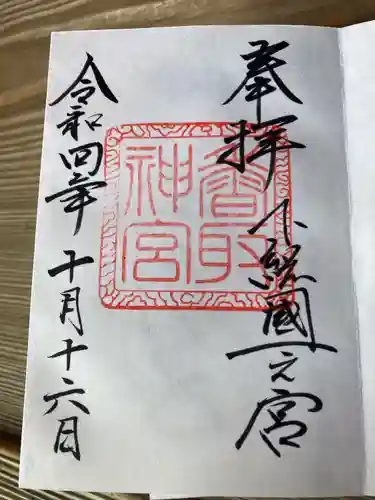 奉拝
下総國一之宮
香取
神宮
令和四年
十月十六日